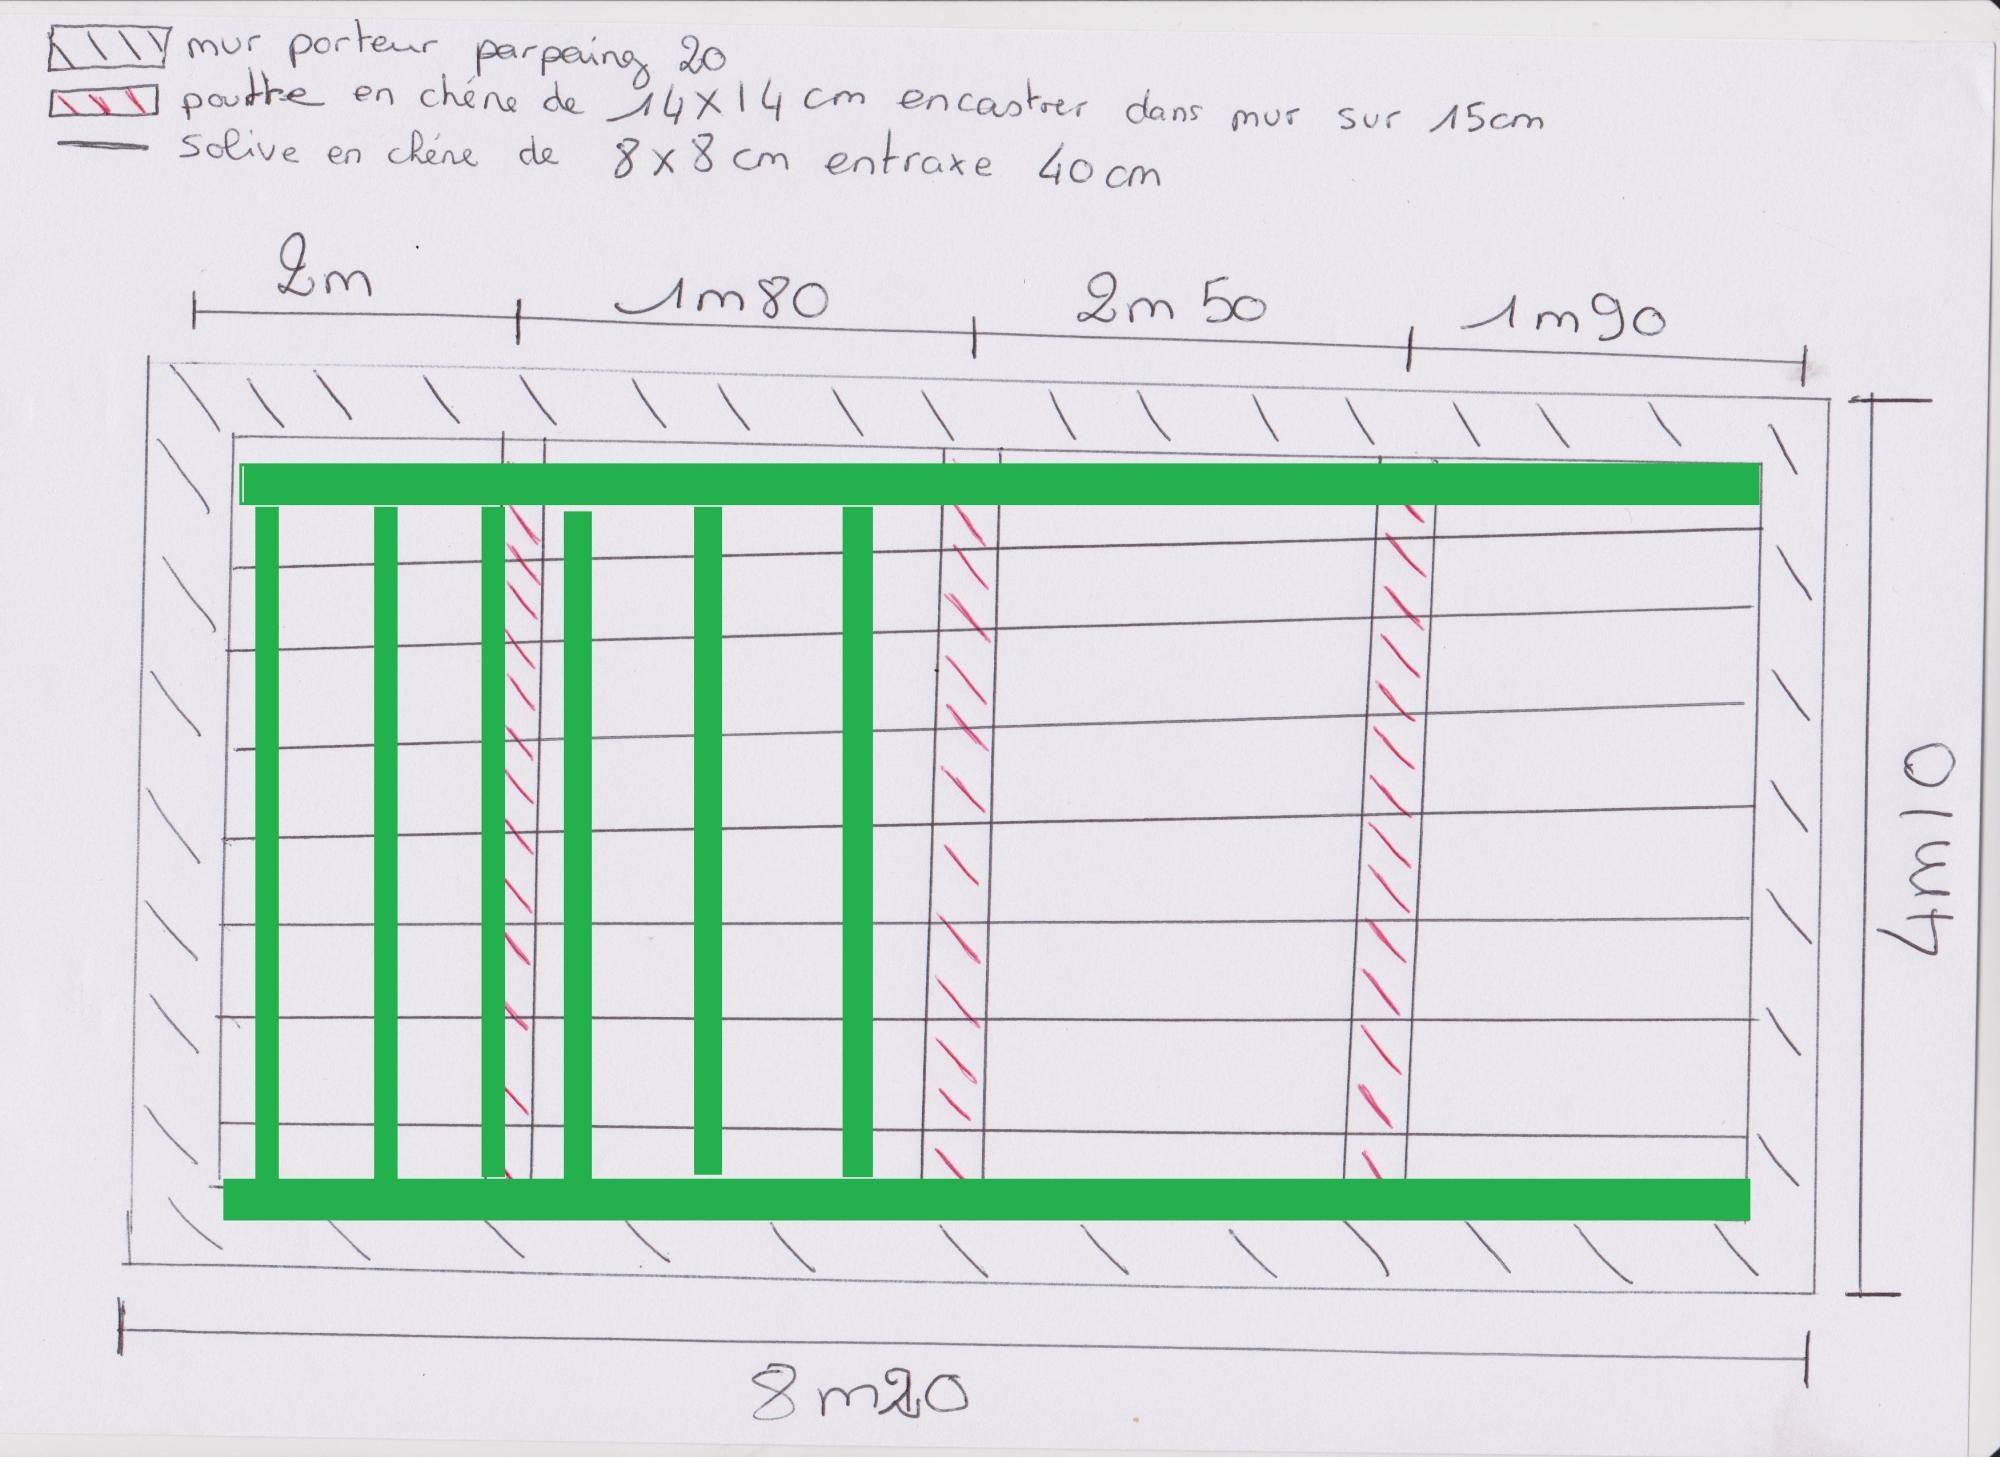 mur porteur parpaing 20
pouttre en chéne de 14x14 cm encastrer dans mur sur 15cm
solive en chéne de 8x8 cm entraxe 40 cm
2m
1m80
2m50
1m90
4m10
8m20